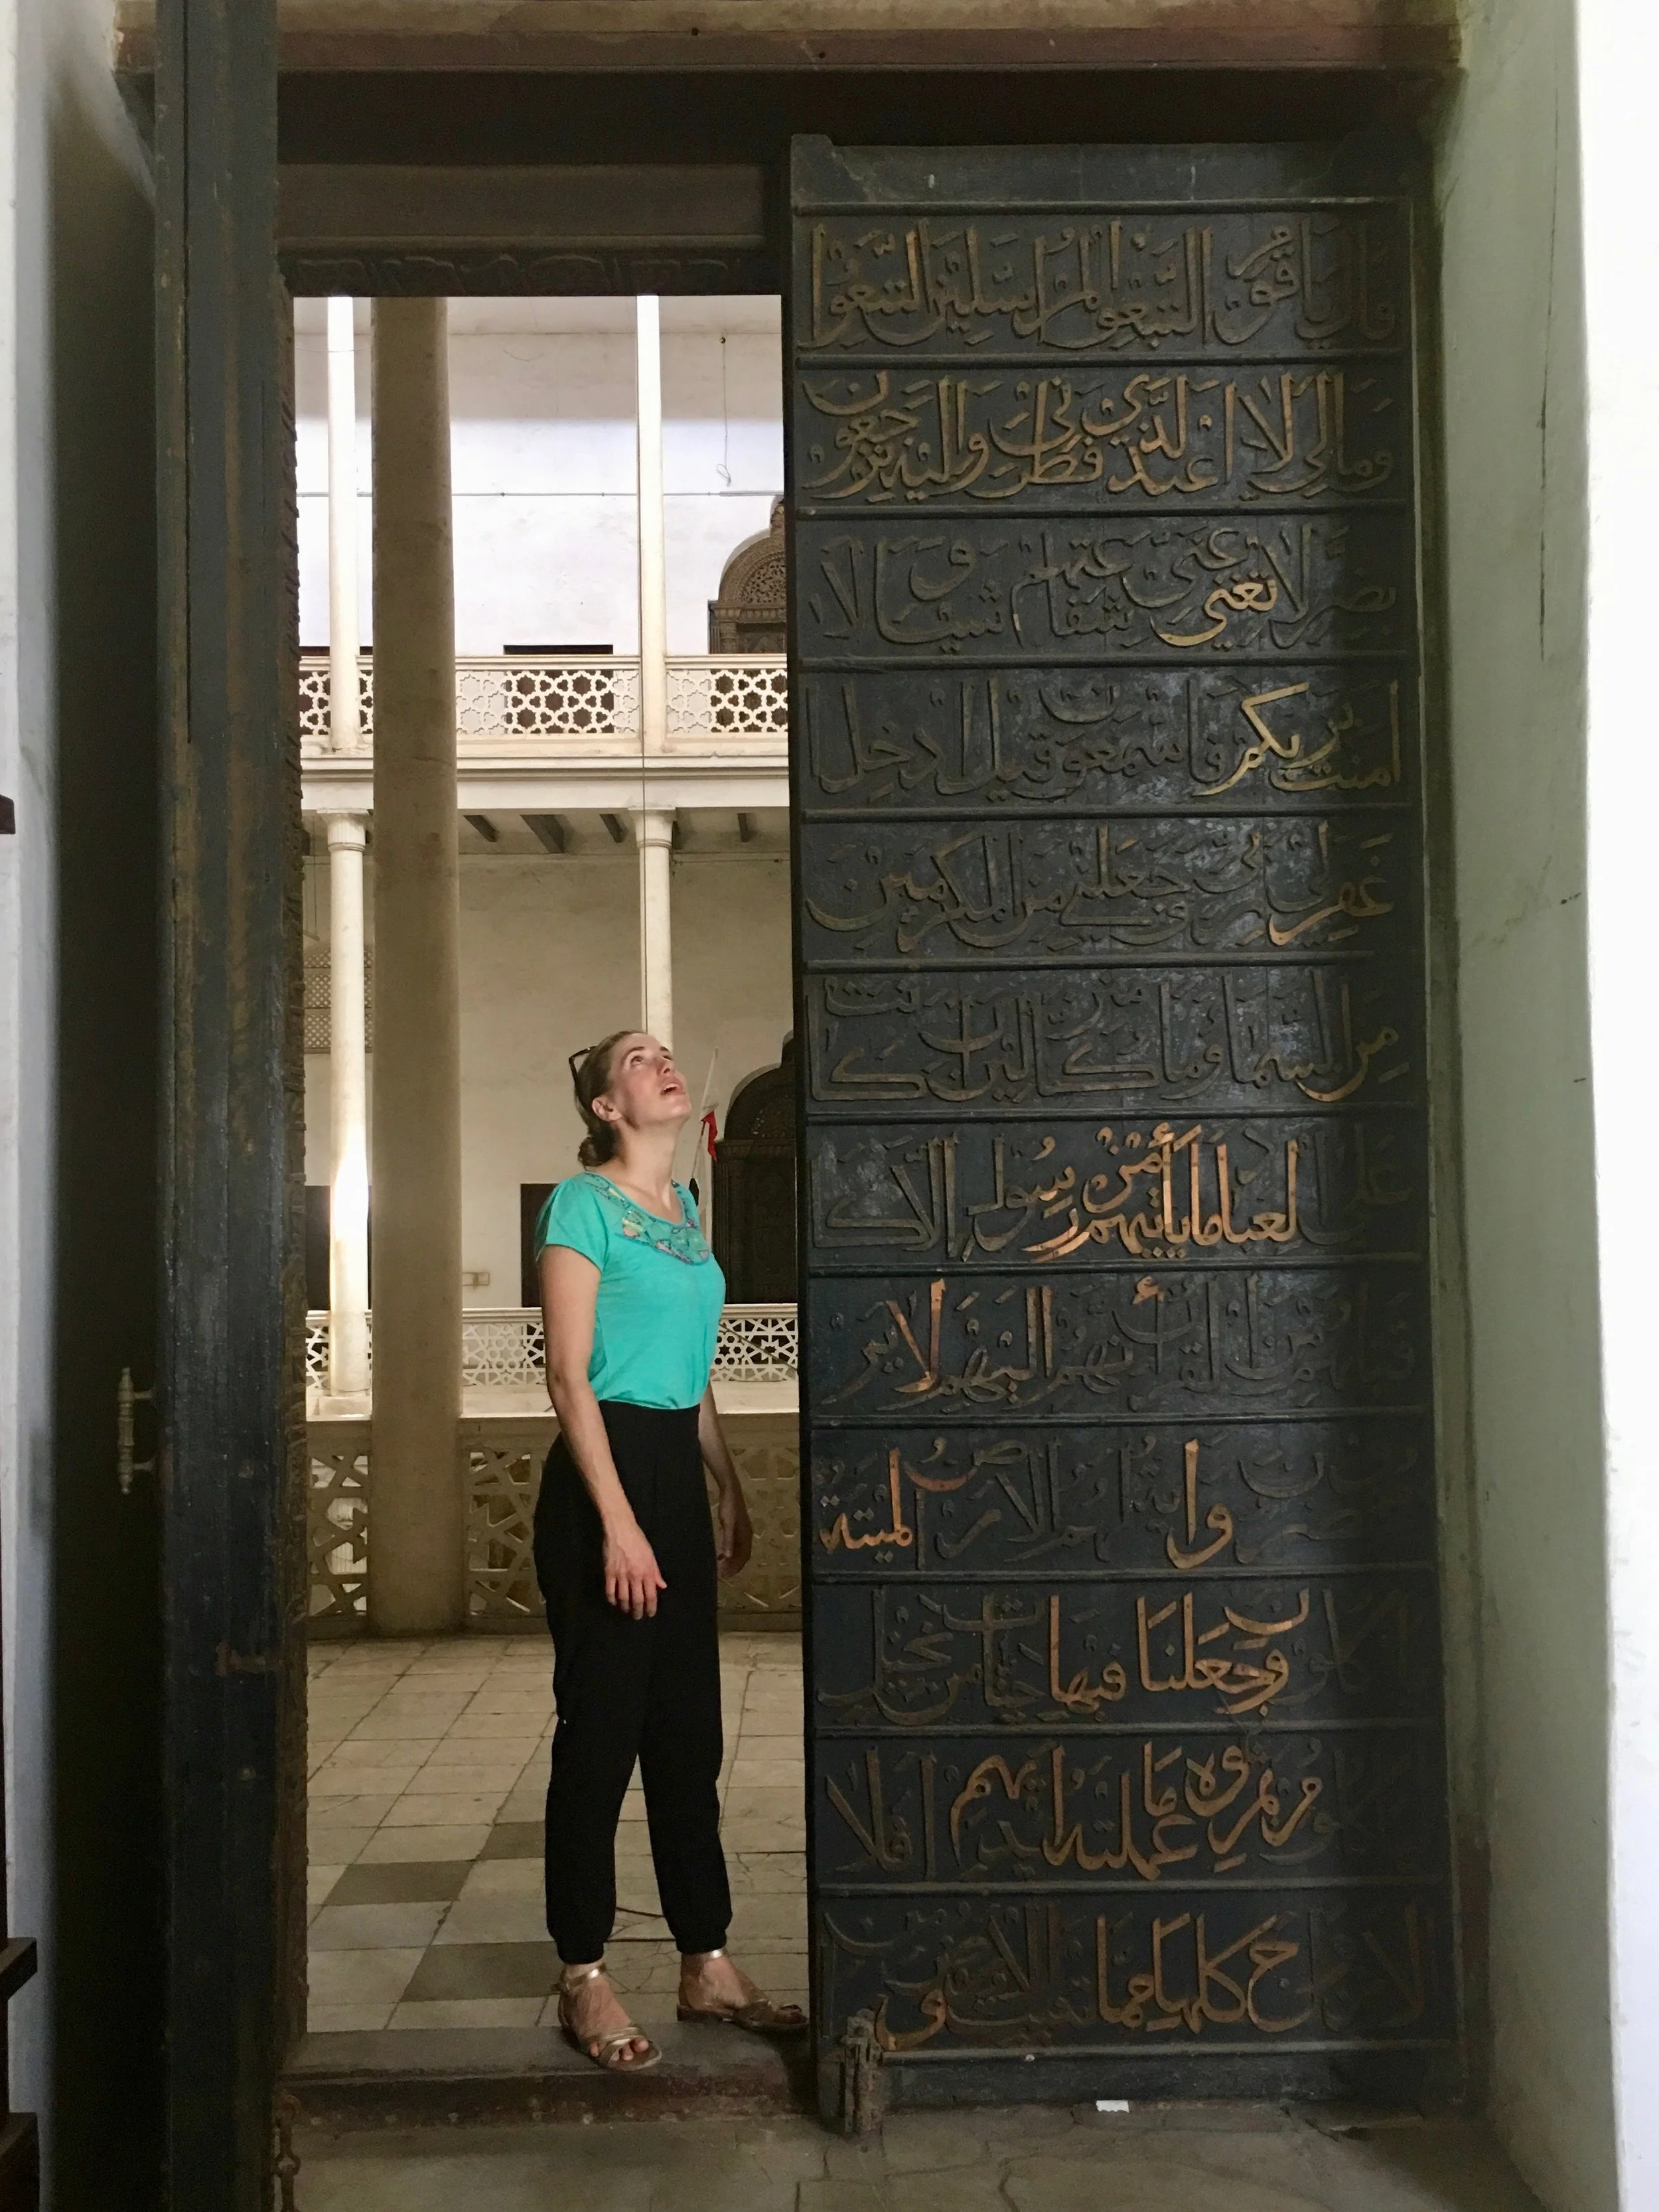 قال يا قوم اتبعوا المرسلين اتبعوا
ومالي لا اعبد الذي فطرني واليه ترجعون
بضر لا تغني عني شفاعتهم شيئا ولا
امنت بربكم فاسمعون قيل ادخل
غفر لي ربي وجعلني من المكرمين
من السما وما كنا منزلين ان كانت
على العباد ما يأتيهم من رسول الا كا
قبلهم من القرون أنهم اليهم لا ير
واية لهم الارض الميتة
كلون وجعلنا فيها جنات من نخيل
ثمره وما عملته ايديهم افلا
الازواج كلها مما تنبت الارض ومن